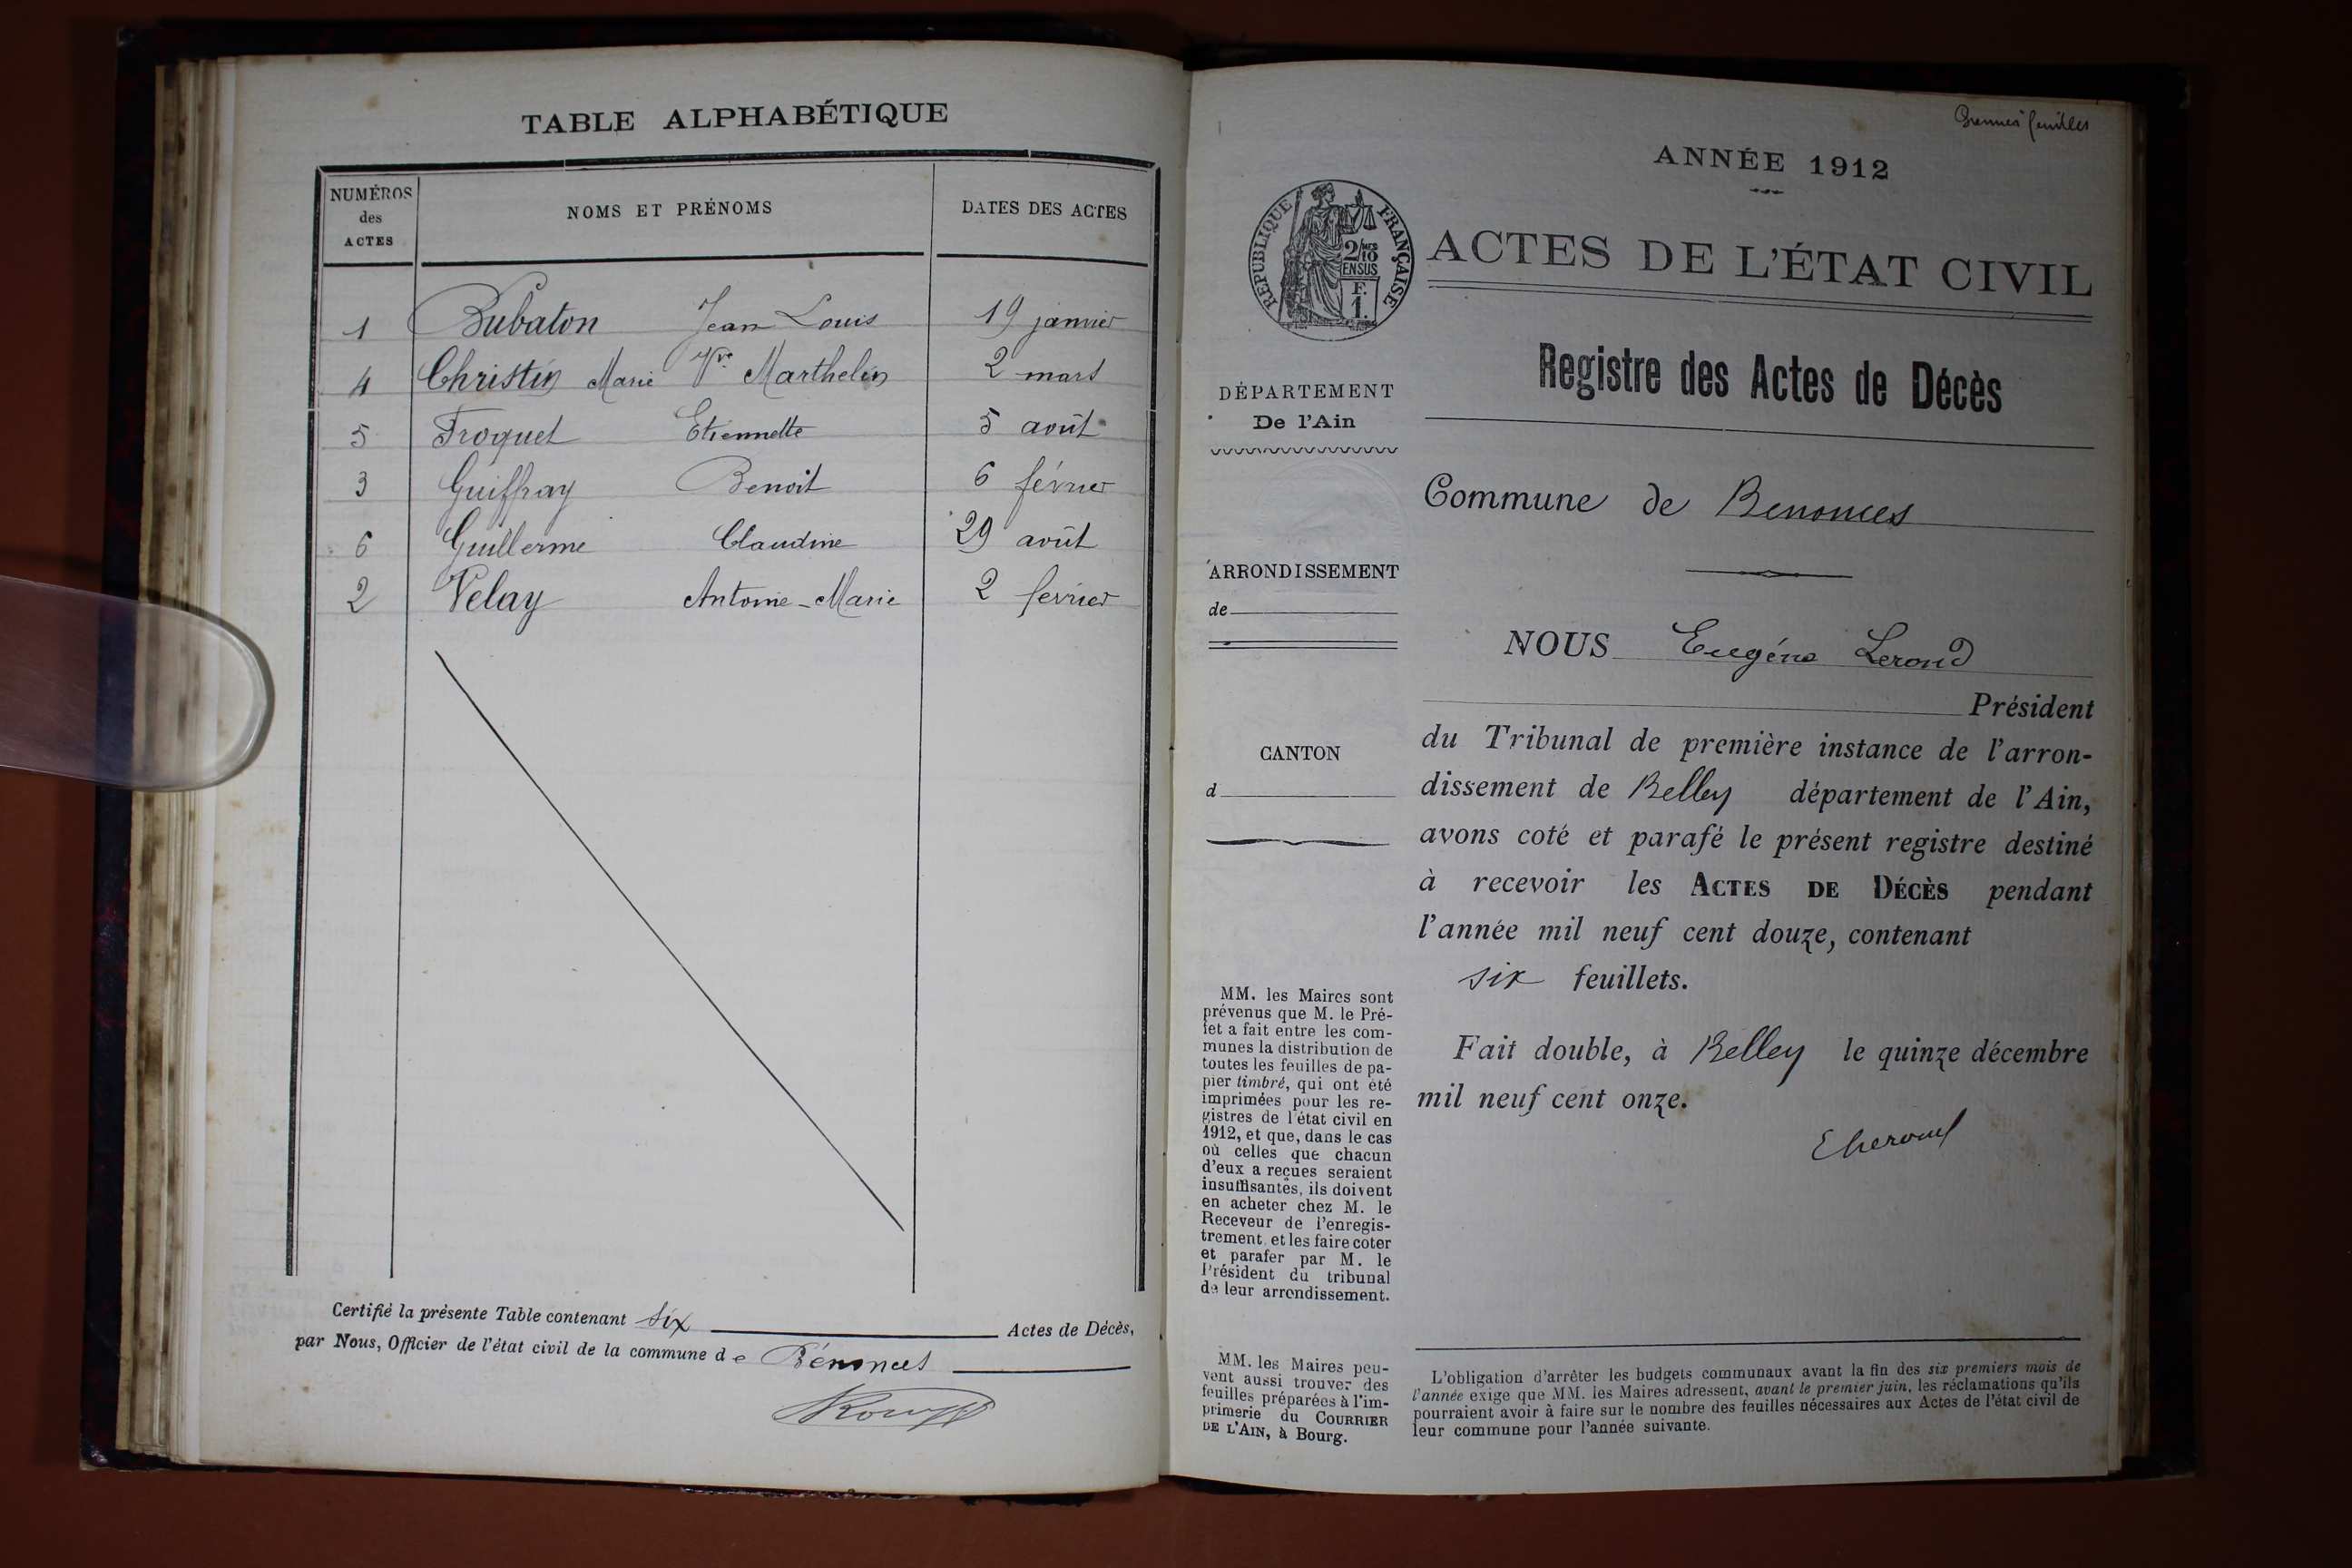 TABLE ALPHABÉTIQUE
NUMÉROS
des
ACTES
NOMS ET PRÉNOMS
DATES DES ACTES
1 Bubaton Jean Louis 19 janvier
4 Christin Marie Vve Marthelin 2 mars
5 Froquet Etiennette 5 août
3 Guiffray Benoit 6 février
6 Guillerme Claudine 29 août
2 Velay Antoine-Marie 2 fevrier
Certifié la présente Table contenant six Actes de Décès,
par Nous, Officier de l'état civil de la commune de Bénonces
feuillet
ANNÉE 1912
RÉPUBLIQUE FRANÇAISE
2/10
EN SUS
F.
1.
ACTES DE L'ÉTAT CIVIL
Registre des Actes de Décès
DÉPARTEMENT
De l'Ain
Commune de Benonces
ARRONDISSEMENT
de
NOUS Eugène Lerond
Président
CANTON
d
du Tribunal de première instance de l'arron-
dissement de Belley département de l'Ain,
avons coté et parafé le présent registre destiné
à recevoir les ACTES DE DÉCÈS pendant
l'année mil neuf cent douze, contenant
six feuillets.
Fait double, à Belley le quinze décembre
mil neuf cent onze.
ELerond
MM. les Maires sont
prévenus que M. le Pré-
fet a fait entre les com-
munes la distribution de
toutes les feuilles de pa-
pier timbré, qui ont été
imprimées pour les re-
gistres de l'état civil en
1912, et que, dans le cas
où celles que chacun
d'eux a reçues seraient
insuffisantes, ils doivent
en acheter chez M. le
Receveur de l'enregis-
trement et les faire coter
et parafer par M. le
Président du tribunal
de leur arrondissement.
MM. les Maires peu-
vent aussi trouver des
feuilles préparées à l'im-
primerie du COURRIER
DE L'AIN, à Bourg.
L'obligation d'arrêter les budgets communaux avant la fin des six premiers mois de
l'année exige que MM. les Maires adressent, avant le premier juin, les réclamations qu'ils
pourraient avoir à faire sur le nombre des feuilles nécessaires aux Actes de l'état civil de
leur commune pour l'année suivante.